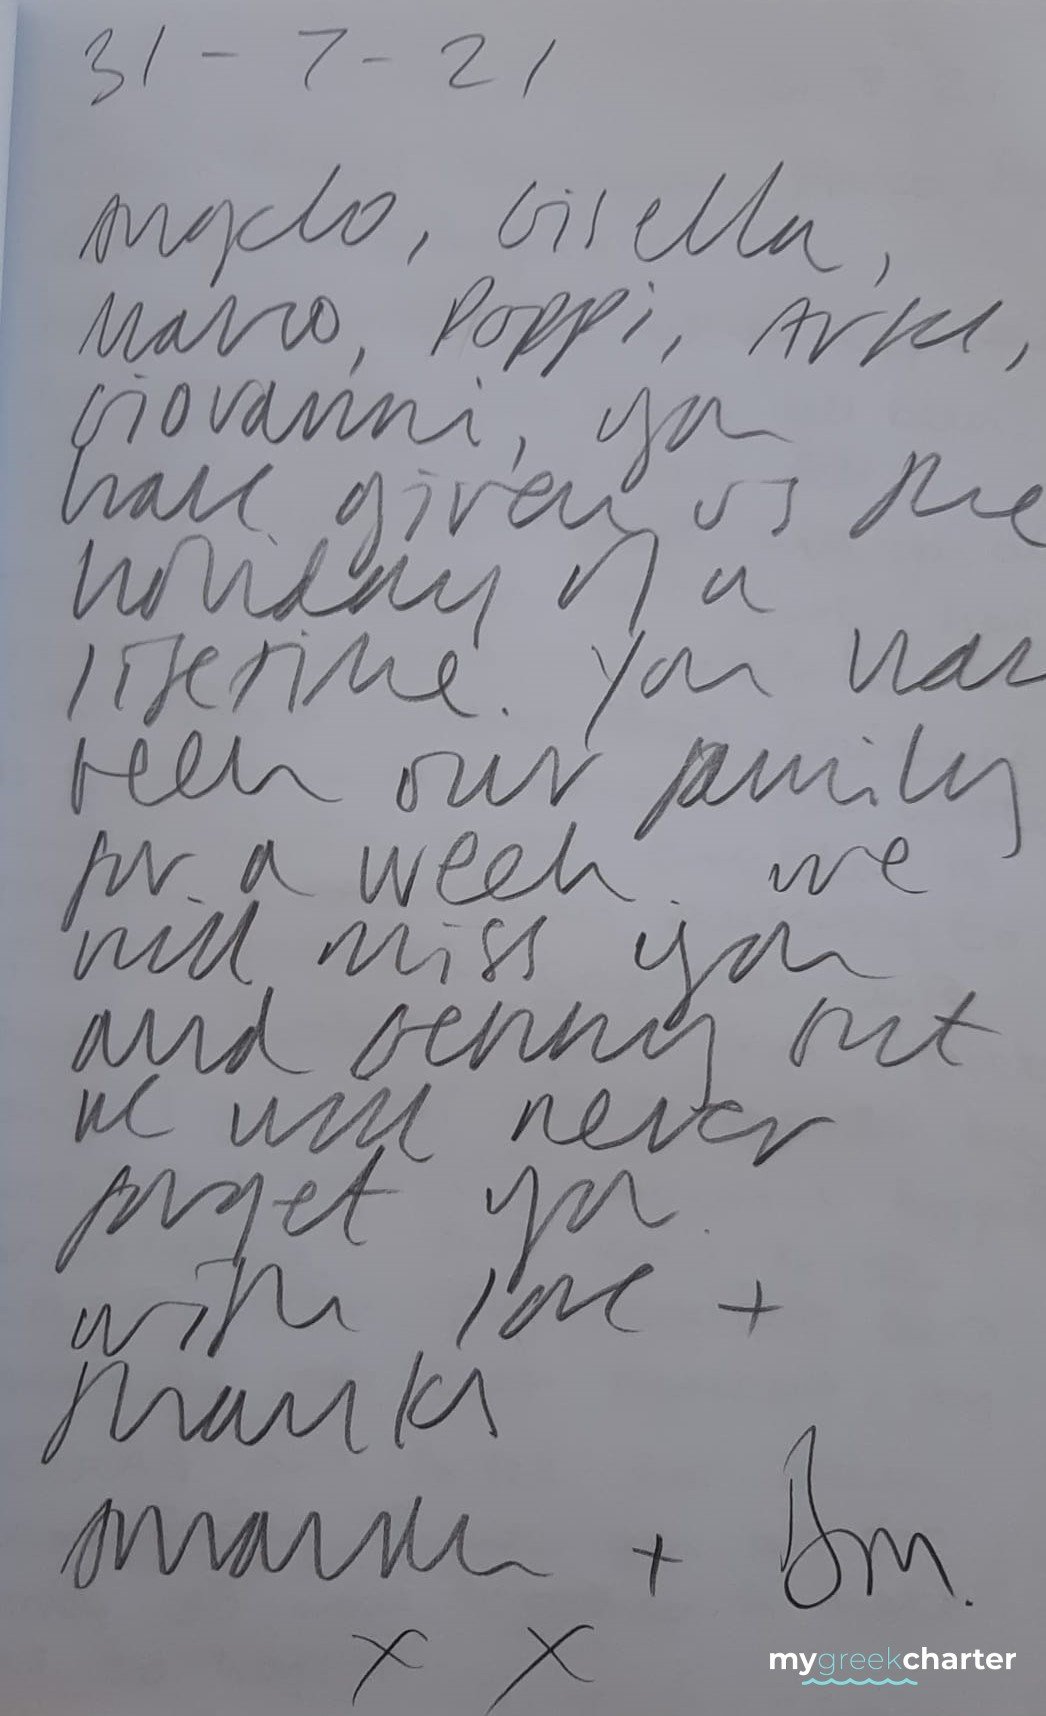 31-7-21
Angelo, Gisella,
Marco, Poppi,
Giovanni, you
have given us the
holiday of a
lifetime. You have
been our family
for a week. We
will miss you
and Benny but
we will never
forget you.
With love +
thanks
+
x x
mygreekcharter